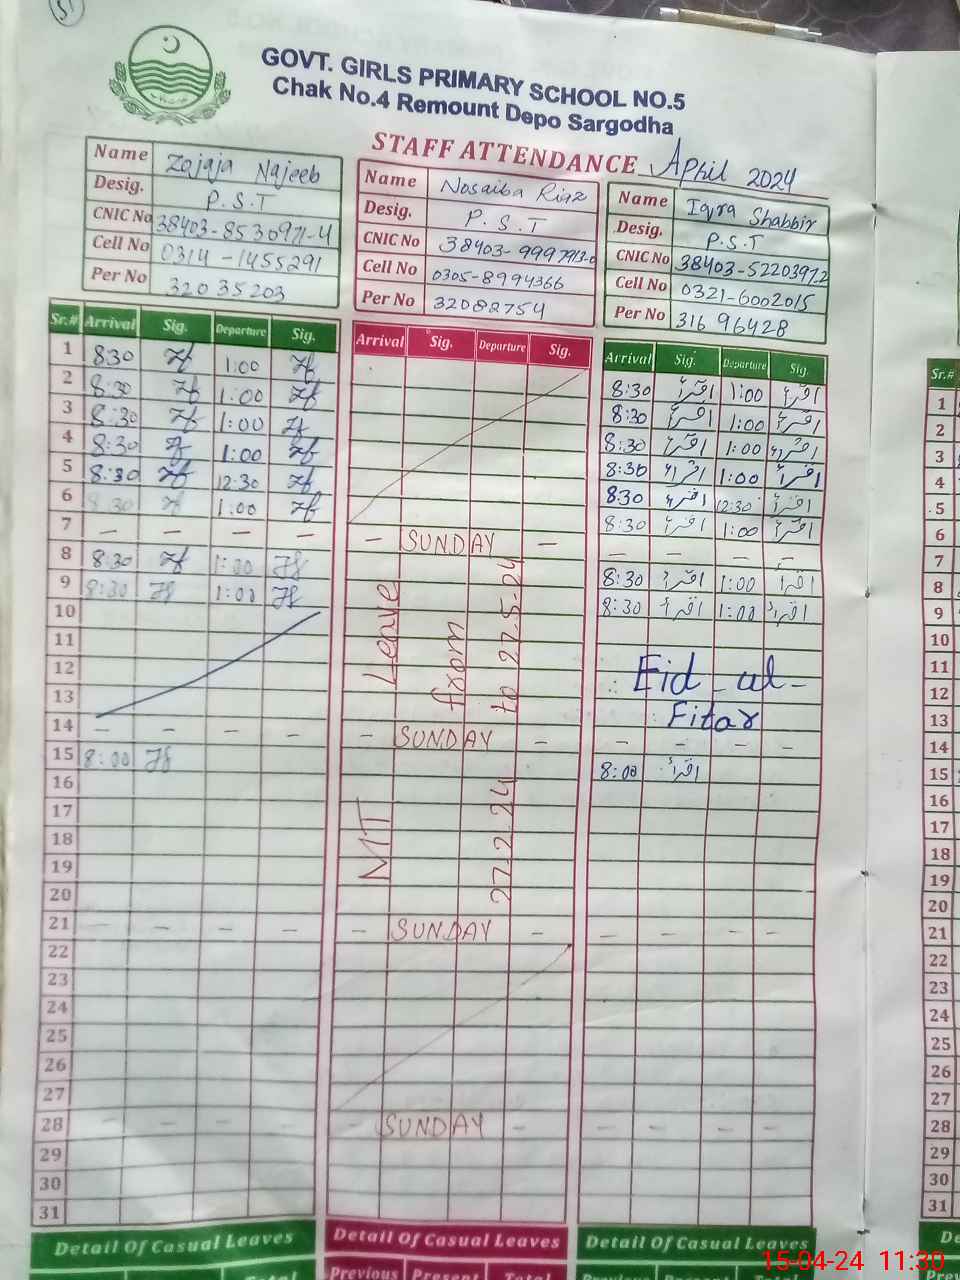 51
GOVT. GIRLS PRIMARY SCHOOL NO.5
Chak No.4 Remount Depo Sargodha
STAFF ATTENDANCE April 2024
Name Zojaja Najeeb
Desig. P.S.T
CNIC No 38403-8530971-4
Cell No 0314-1455291
Per No 32035203
Name Nosaiba Riaz
Desig. P.S.T
CNIC No 38403-9997913-0
Cell No 0305-8994366
Per No 32082754
Name Iqra Shabbir
Desig. P.S.T
CNIC No 38403-5220397.2
Cell No 0321-6002015
Per No 316 96428
Sr.# Arrival Sig. Departure Sig. Arrival Sig. Departure Sig. Arrival Sig. Departure Sig. Sr.#
1 8:30 1:00 8:30 اقرأ 1:00 اقرأ 1
2 8:30 1:00 8:30 اقرأ 1:00 اقرأ 2
3 8:30 1:00 8:30 اقرأ 1:00 اقرأ 3
4 8:30 1:00 8:30 اقرأ 1:00 اقرأ 4
5 8:30 12:30 8:30 اقرأ 12:30 اقرأ 5
6 8:30 1:00 8:30 اقرأ 1:00 اقرأ 6
7 – – – – – SUNDAY – – – – – 7
8 8:30 1:00 8:30 اقرأ 1:00 اقرأ 8
9 8:30 1:00 8:30 اقرأ 1:00 اقرأ 9
10 10
11 11
12 Eid-ul- 12
13 Fitar 13
14 – – – – – SUNDAY – – – – – 14
15 8:00 8:00 اقرأ 15
16 16
17 17
18 18
19 19
20 20
21 – – – – – SUNDAY – – – – – 21
22 22
23 23
24 24
25 25
26 26
27 27
28 – – – – SUNDAY – – – – – 28
29 29
30 30
31 31
MT Leave
from
27.2.24 to 27.5.24
Detail Of Casual Leaves Detail Of Casual Leaves Detail Of Casual Leaves De
Total Previous Present Total Previous Present Total
15-04-24 11:30